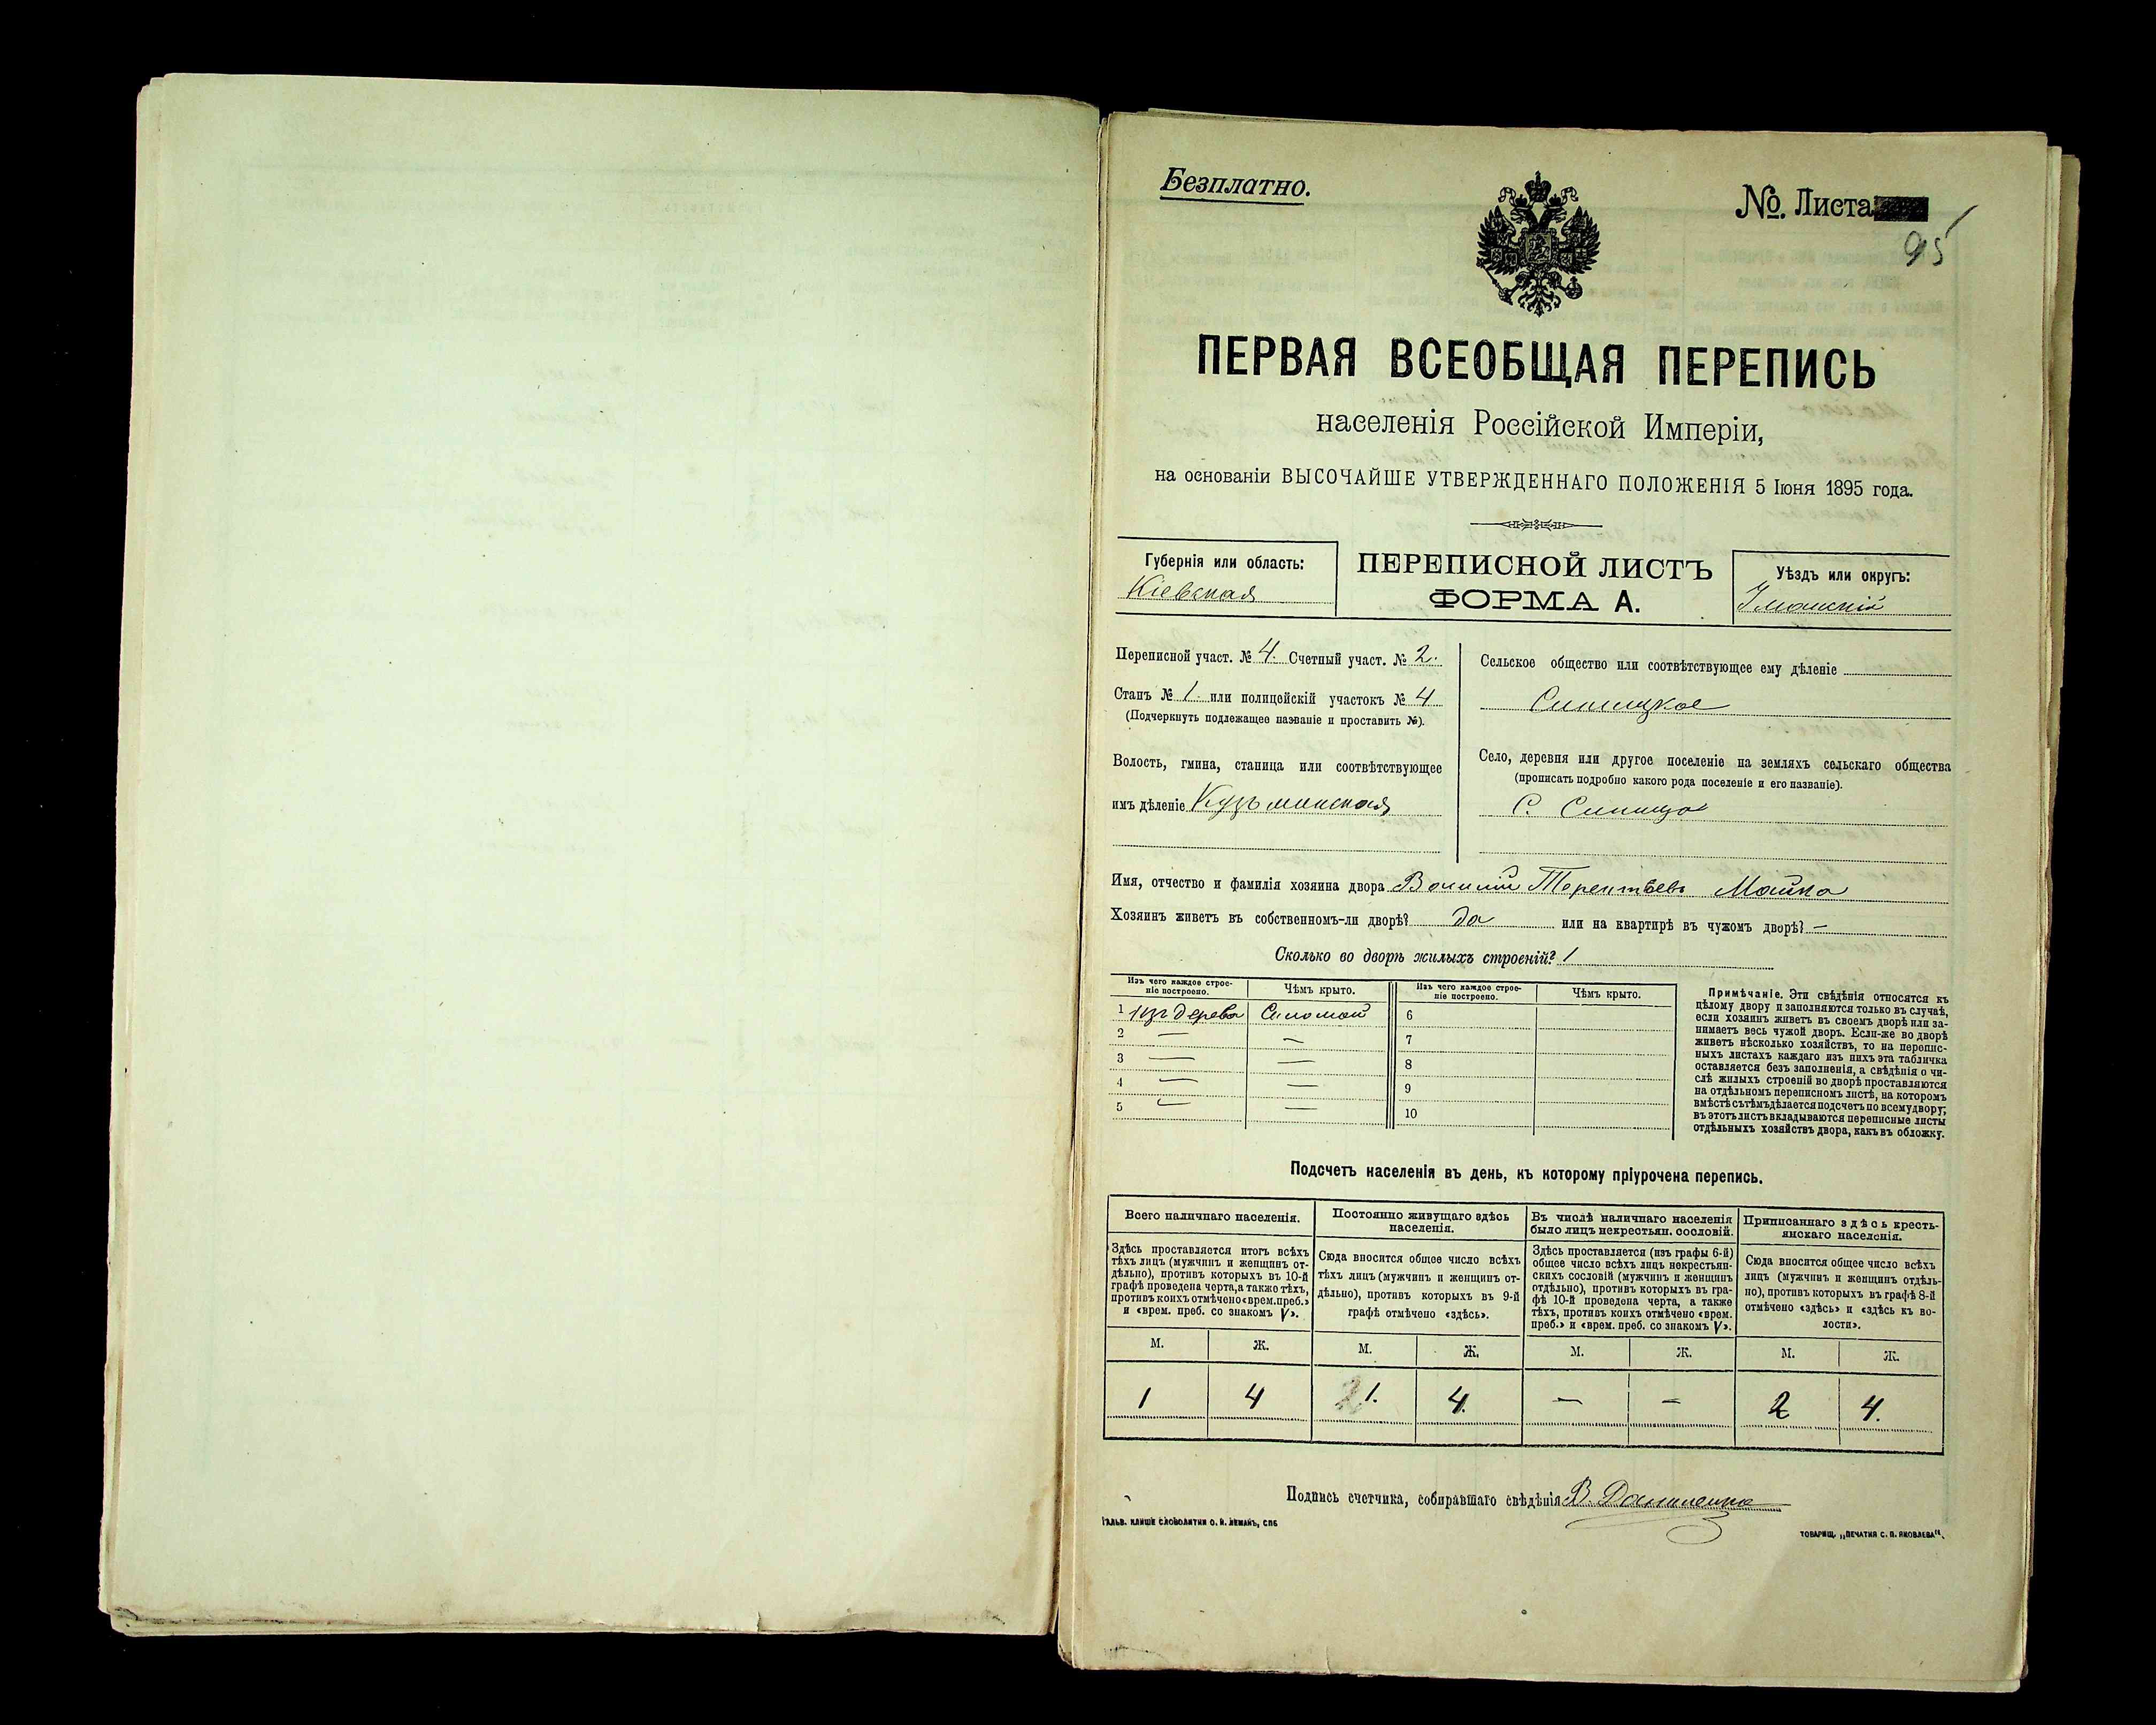 Безплатно.
№. Листа
95
ПЕРВАЯ ВСЕОБЩАЯ ПЕРЕПИСЬ
населенія Россійской Имперіи,
на основаніи ВЫСОЧАЙШЕ УТВЕРЖДЕННАГО ПОЛОЖЕНІЯ 5 Іюня 1895 года.
Губернія или область:
Кіевская
ПЕРЕПИСНОЙ ЛИСТЪ
ФОРМА А.
Уѣздъ или округъ:
Уманскій
Переписной участ. № 4. Счетный участ. № 2.
Станъ № 1. или полицейскій участокъ № 4
(Подчеркнуть подлежащее названіе и проставить №).
Волость, гмина, станица или соотвѣтствующее
имъ дѣленіе Кузьминская
Сельское общество или соотвѣтствующее ему дѣленіе
Синицкое
Село, деревня или другое поселеніе на земляхъ сельскаго общества
(прописать подробно какого рода поселеніе и его названіе).
С. Синица
Имя, отчество и фамилія хозяина двора Василій Терентьевъ
Хозяинъ живетъ въ собственномъ-ли дворѣ? да или на квартирѣ въ чужомъ дворѣ? —
Сколько во дворѣ жилыхъ строеній? 1
Изъ чего каждое строе-
ніе построено.
Чѣмъ крыто.
Изъ чего каждое строе-
ніе построено.
Чѣмъ крыто.
1 изъ дерева Соломой 6
2 — — 7
3 — — 8
4 — — 9
5 — — 10
Примѣчаніе. Эти свѣдѣнія относятся къ
цѣлому двору и заполняются только въ случаѣ,
если хозяинъ живетъ въ своемъ дворѣ или за-
нимаетъ весь чужой дворъ. Если-же во дворѣ
живетъ нѣсколько хозяйствъ, то на перепис-
ныхъ листахъ каждаго изъ нихъ эта табличка
оставляется безъ заполненія, а свѣдѣнія о чи-
слѣ жилыхъ строеній во дворѣ проставляются
на отдѣльномъ переписномъ листѣ, на которомъ
вмѣстѣ съ тѣмъ дѣлается подсчетъ по всему двору;
въ этотъ листъ вкладываются переписные листы
отдѣльныхъ хозяйствъ двора, какъ въ обложку.
Подсчетъ населенія въ день, къ которому пріурочена перепись.
Всего наличнаго населенія.
Здѣсь проставляется итогъ всѣхъ
тѣхъ лицъ (мужчинъ и женщинъ от-
дѣльно), противъ которыхъ въ 10-й
графѣ проведена черта, а также тѣхъ,
противъ коихъ отмѣчено «врем. преб.»
и «врем. преб. со знакомъ V».
Постоянно живущаго здѣсь
населенія.
Сюда вносится общее число всѣхъ
тѣхъ лицъ (мужчинъ и женщинъ от-
дѣльно), противъ которыхъ въ 9-й
графѣ отмѣчено «здѣсь».
Въ числѣ наличнаго населенія
было лицъ некрестьян. сословій.
Здѣсь проставляется (изъ графы 6-й)
общее число всѣхъ лицъ некрестьян-
скихъ сословій (мужчинъ и женщинъ
отдѣльно), противъ которыхъ въ гра-
фѣ 10-й проведена черта, а также
тѣхъ, противъ коихъ отмѣчено «врем.
преб.» и «врем. преб. со знакомъ V».
Приписаннаго здѣсь кресть-
янскаго населенія.
Сюда вносится общее число всѣхъ
лицъ (мужчинъ и женщинъ отдѣль-
но), противъ которыхъ въ графѣ 8-й
отмѣчено «здѣсь» и «здѣсь къ во-
лости».
М. Ж. М. Ж. М. Ж. М. Ж.
1 4 1. 4. — — 2 4.
Подпись счетчика, собиравшаго свѣдѣнія В. Даниленко
ГАЛЬВ. КЛИШЕ СЛОВОЛИТНИ О. И. ЛЕМАНЪ, СПБ
ТОВАРИЩ. „ПЕЧАТНЯ С. П. ЯКОВЛЕВА“.